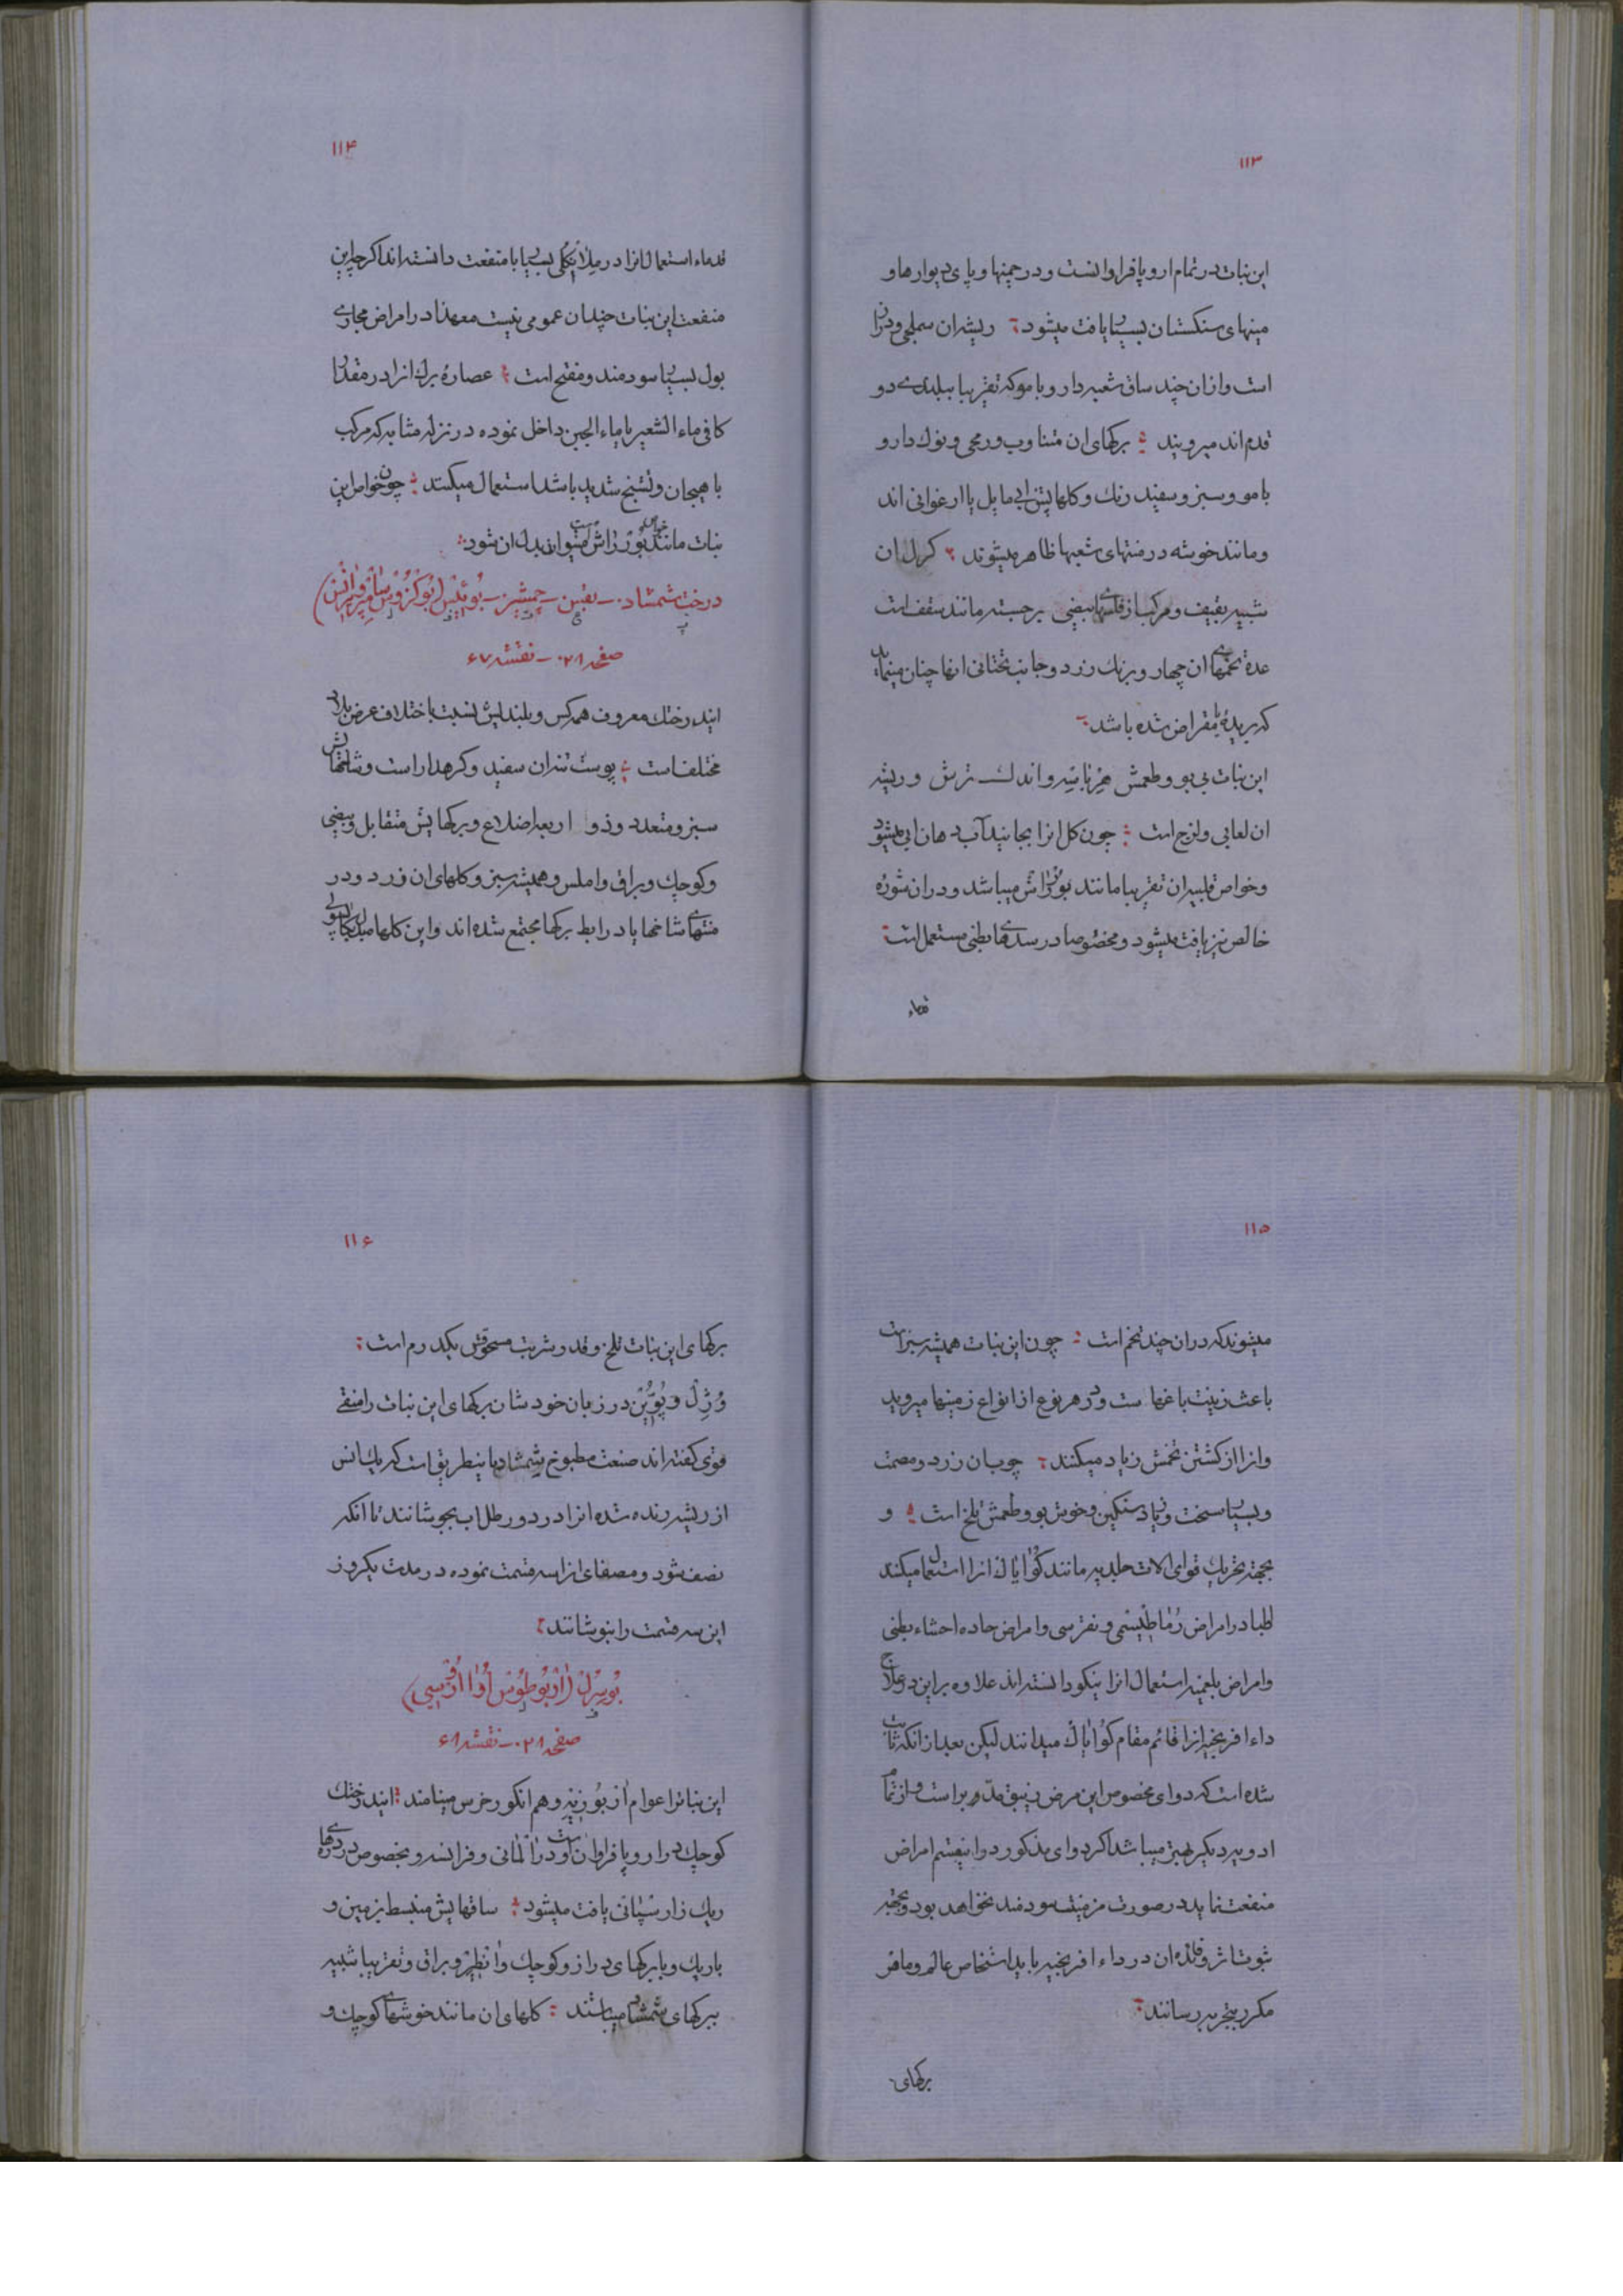 ۱۱۳
این نبات در تمام اروپا فراوانست و در چمنها و پای دیوارها و
مینهای سنکستان بسیار یافت میشود ریشه‌ان سملجی و دران
است وازان چند ساق شعبه دار و با مو که تقریبا ببلندی دو
قدم اند میرویند برکهای ان متناوب و رمحی و نوک دار و
با مو و سبز و سفید رنک و کلهایش ابی مایل یا ارغوانی اند
و مانند خوشه در منتهای شعبها ظاهر میشوند کرل ان
شبیه بقیف و مرکب از فلسهای بیضی برجسته مانند سقف است
عدهٔ تخمهای ان چهار و برنک زرد و جانب تحتانی انها چنان مینماید
که بریدهٔ مقراض شده باشد
این نبات بی بو و طعمش هربانیه و اندک ترش و ریشه
ان لعابی و لزج است چون کل انرا بجایند آب دهان ابی میشود
و خواص قلبیه ان تقریبا مانند بوراش میباشد و دران شورهٔ
خالص نیز یافت میشود و مخصوصا در سدهای بطنی مستعمل است
قدماء
۱۱۴
قدماء استعمال انرا در ملانکلی بسیار با منفعت دانسته‌اند اکرچه این
منفعت این نبات چندان عمومی نیست معهذا در امراض مجاری
بول بسیار سودمند و مفتح است عصارهٔ برک انرا در مقدار
کافی ماء الشعیر یا ماء الجبن داخل نموده در نزله مثانه که مرکب
با هیجان و تشنج شدید باشد استعمال میکنند چون خواص این
نبات مانند خواص بورراش است میتواند بدل ان شود
درخت شمشاد - بقس - چمشیر - بوئیس (بوکزوس سانپرویرانس)
صفحه ۲۱ - نقشه ۶۷
ایندرختک معروف همه کس و بلندیش نسبت باختلاف عرض بلاد
مختلف است پوست تنه ان سفید و کره دار است و شاخهایش
سبز و متعدد و ذو اربعه اضلاع و برکهایش متقابل و بیضی
و کوچک و براق و املس و همیشه سبز و کلهای ان زرد و در
منتهای شاخها یا در ابط برکها مجتمع شده‌اند و این کلها مبدل بکپسولی
۱۱۵
میشوند که دران چند تخم است چون این نبات همیشه سبز است
باعث زینت باغهاست و در هر نوع از انواع زمینها میروید
و انرا از کشتن تخمش زیاد میکنند چوب ان زرد و مصمت
و بسیار سخت و زیاد سنکین و خوش بو و طعمش تلخ است و
بجهة تحریک قوای الات جلدیه مانند کوایاک انرا استعمال میکنند
اطبا در امراض رماطیسمی و نقرسی و امراض حاده احشاء بطنی
و امراض بلغمیه استعمال انرا نیکو دانسته‌اند علاوه براین در علاج
داء افرنجیه انرا قائم مقام کوایاک میدانند لیکن بعد از انکه ثابت
شده است که دوای مخصوص این مرض زیبق مدبر است و از تمام
ادویه دیکر بهتر میباشد اکر دوای مذکور در اینقسم امراض
منفعت ننماید در صورت مزمنیت سودمند نخواهد بود و بجهة
ثبوت اثر و فائده ان در داء افرنجیه باید اشخاص عالم و ماهر
مکرر بتجربه رسانند
برکهای
۱۱۶
برکهای این نبات تلخ و قدر شربت مسحوقش یکدرم است
وژل و بوین در زبان خودشان برکهای این نبات را منقی
قوی کفته‌اند صنعت مطبوخ شمشاد باینطریق است که یک انس
از ریشه رنده شده انرا در دو رطل اب بجوشانند تا انکه
نصف شود و مصفای انرا سه قسمت نموده در مدت یکروز
این سه قسمت را بنوشانند
بوسرل (اربوطوس اوا اورسی)
صفحه ۲۱ - نقشه ۶۸
این نباترا عوام اربوزیه و هم انکور خرس مینامند ایندرختک
کوچک در اروپا فراوان است و در المانی و فرانسه و بخصوص در درهای
ریک زار سپانی یافت میشود ساقهایش منبسط بزمین و
باریک و با برکهای دراز و کوچک و انطیر و براق و تقریبا شبیه
ببرکهای شمشاد میباشند کلهای ان مانند خوشهای کوچک و